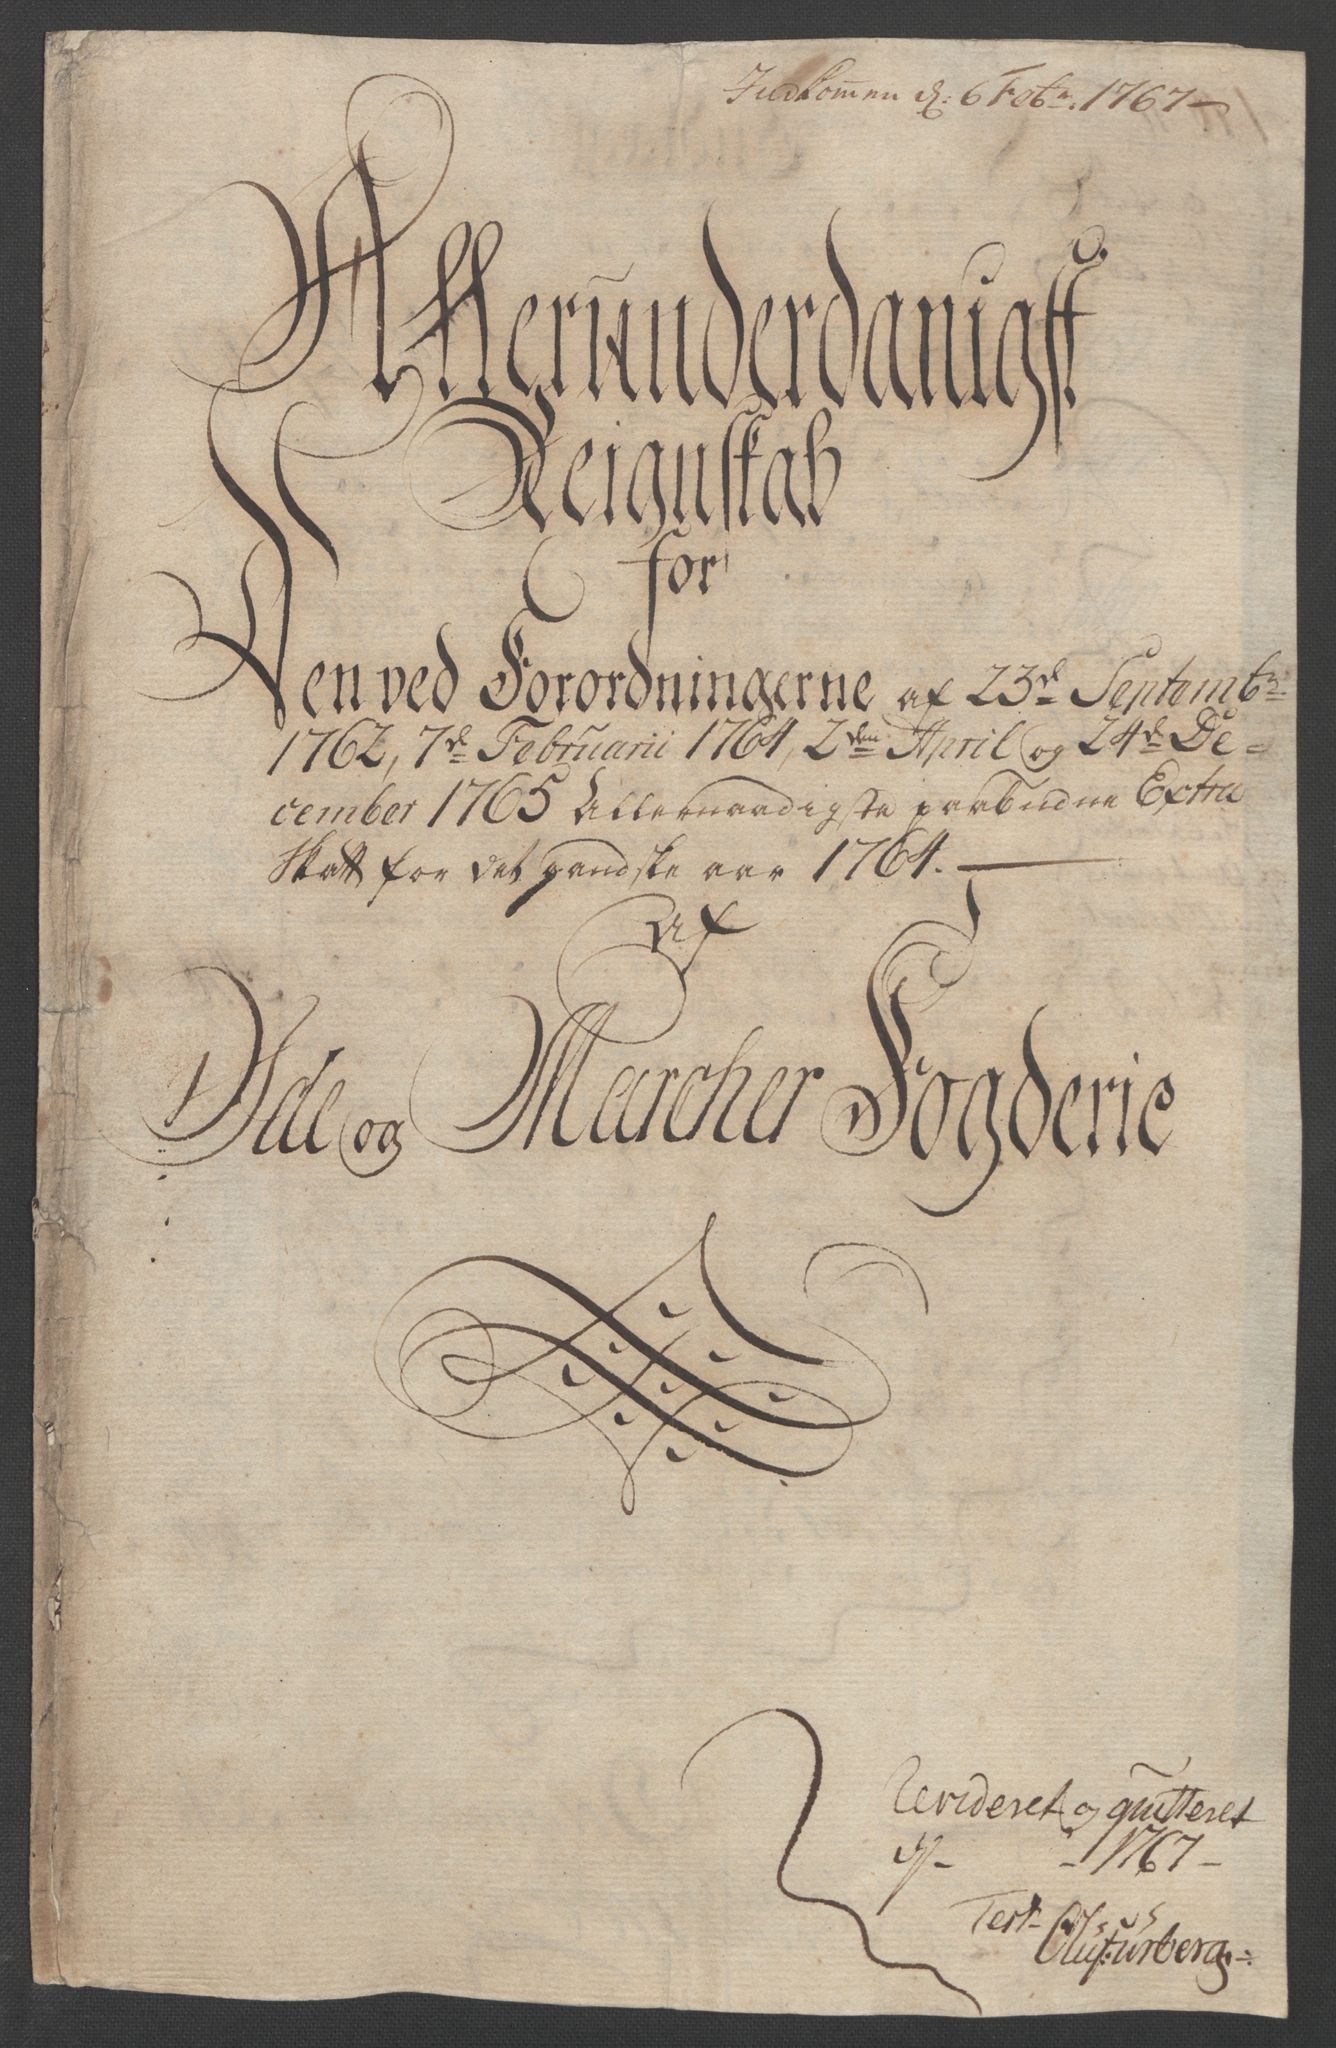 Indkommen d: 6 Febr. 1767
Allerunderdanigst
Reignskab
for
Den ved Forordningerne af 23de Septembr.
1762, 7de Februarii 1764, 2den April og 24de De=
cember 1765 Allernaadigste paabudne Extra
Skatt for det gandske aar 1764.
Af
Ide og Marcher Fogderie
Revideret og quitteret
d - 1767 -
Test